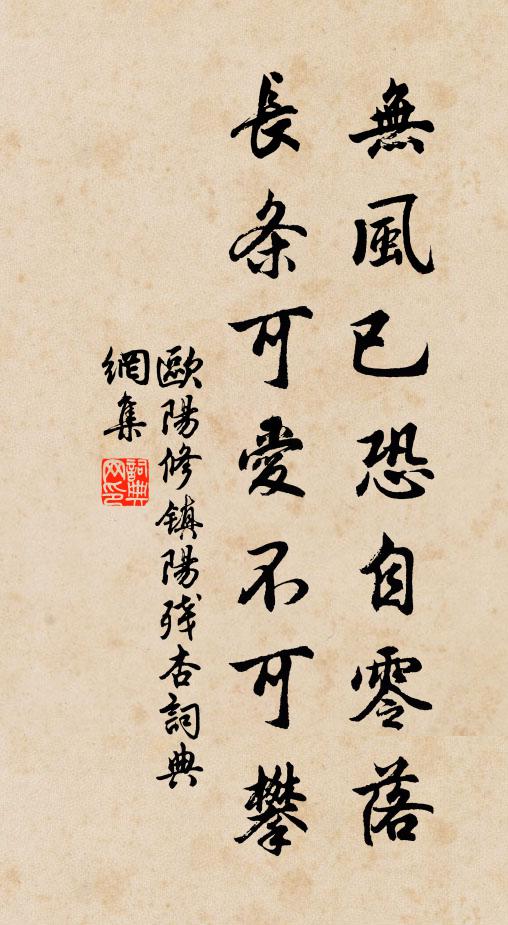 無風已恐自零落
長条可愛不可攀
歐陽修鎮陽残杏詞典
網集
詞典
网印